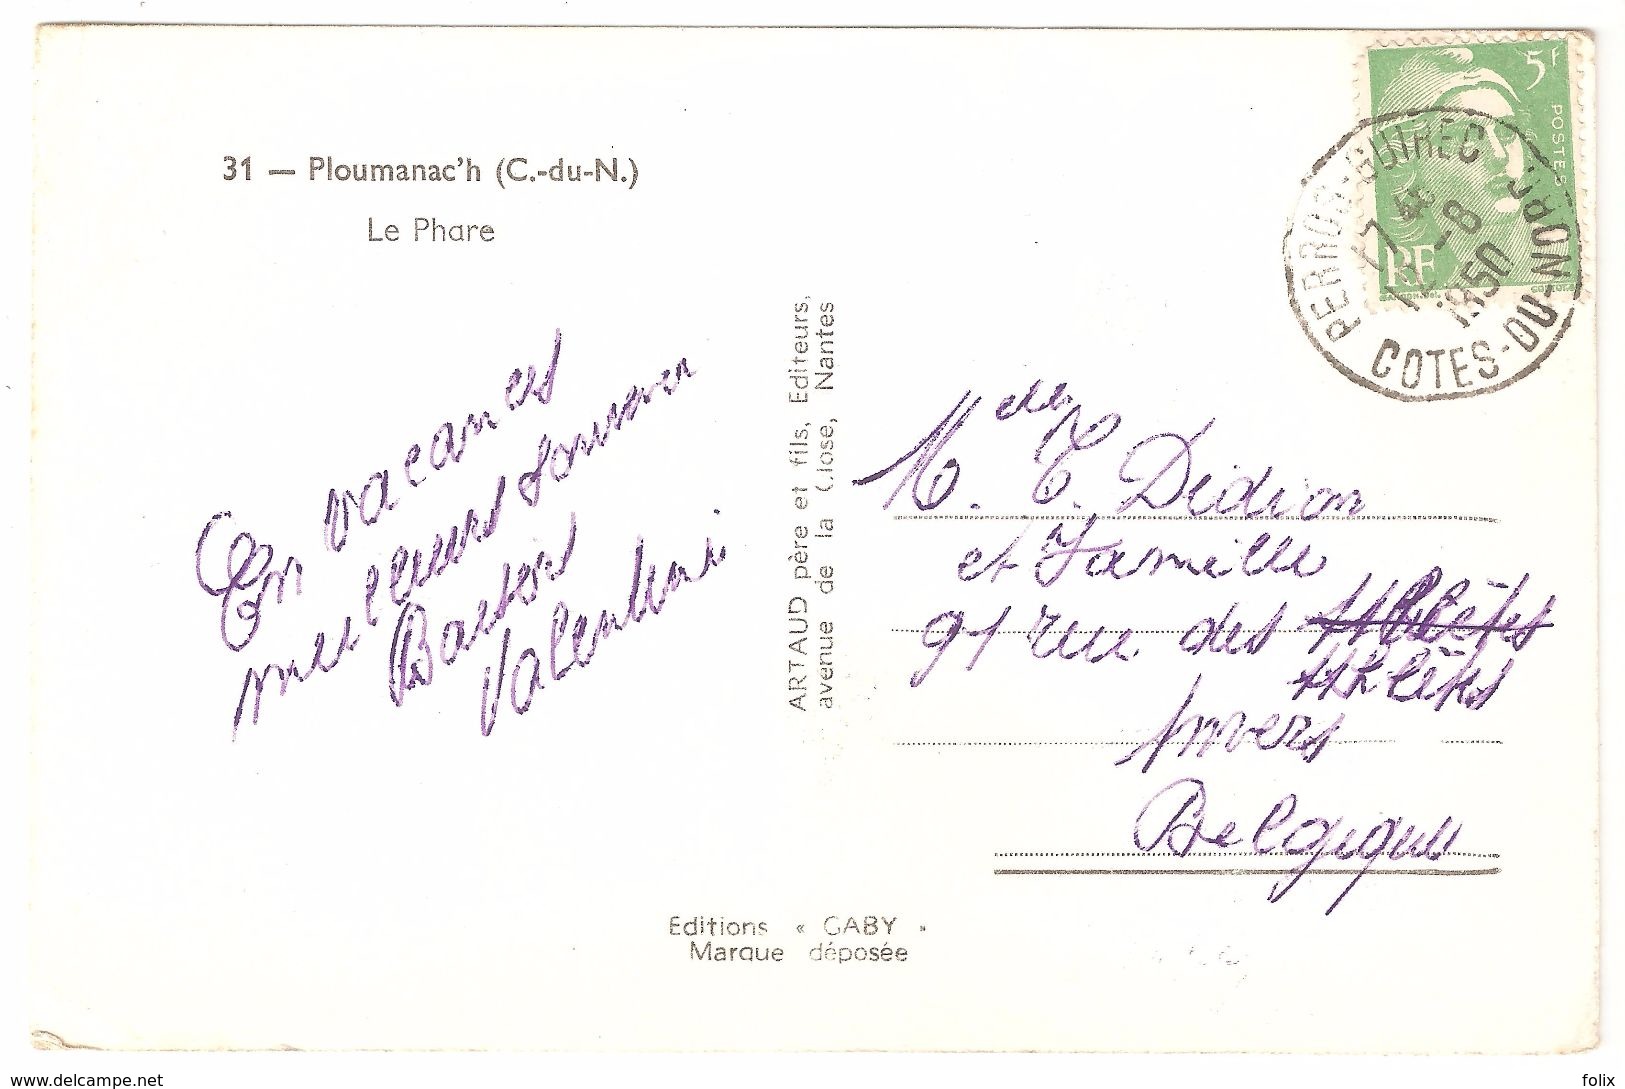 31 — Ploumanac'h (C.-du-N.)
Le Phare
En vacances
meilleurs souvenir
Valentini
ARTAUD père et fils, Editeurs,
avenue de la Close, Nantes
Editions « GABY »
Marque déposée
5f
POSTES
RF
PERROS-GUIREC
COTES-DU-NORD
17 H
-8
1950
Didion
et famille
91 rue des
Anvers
Belgique
www.delcampe.net
folix